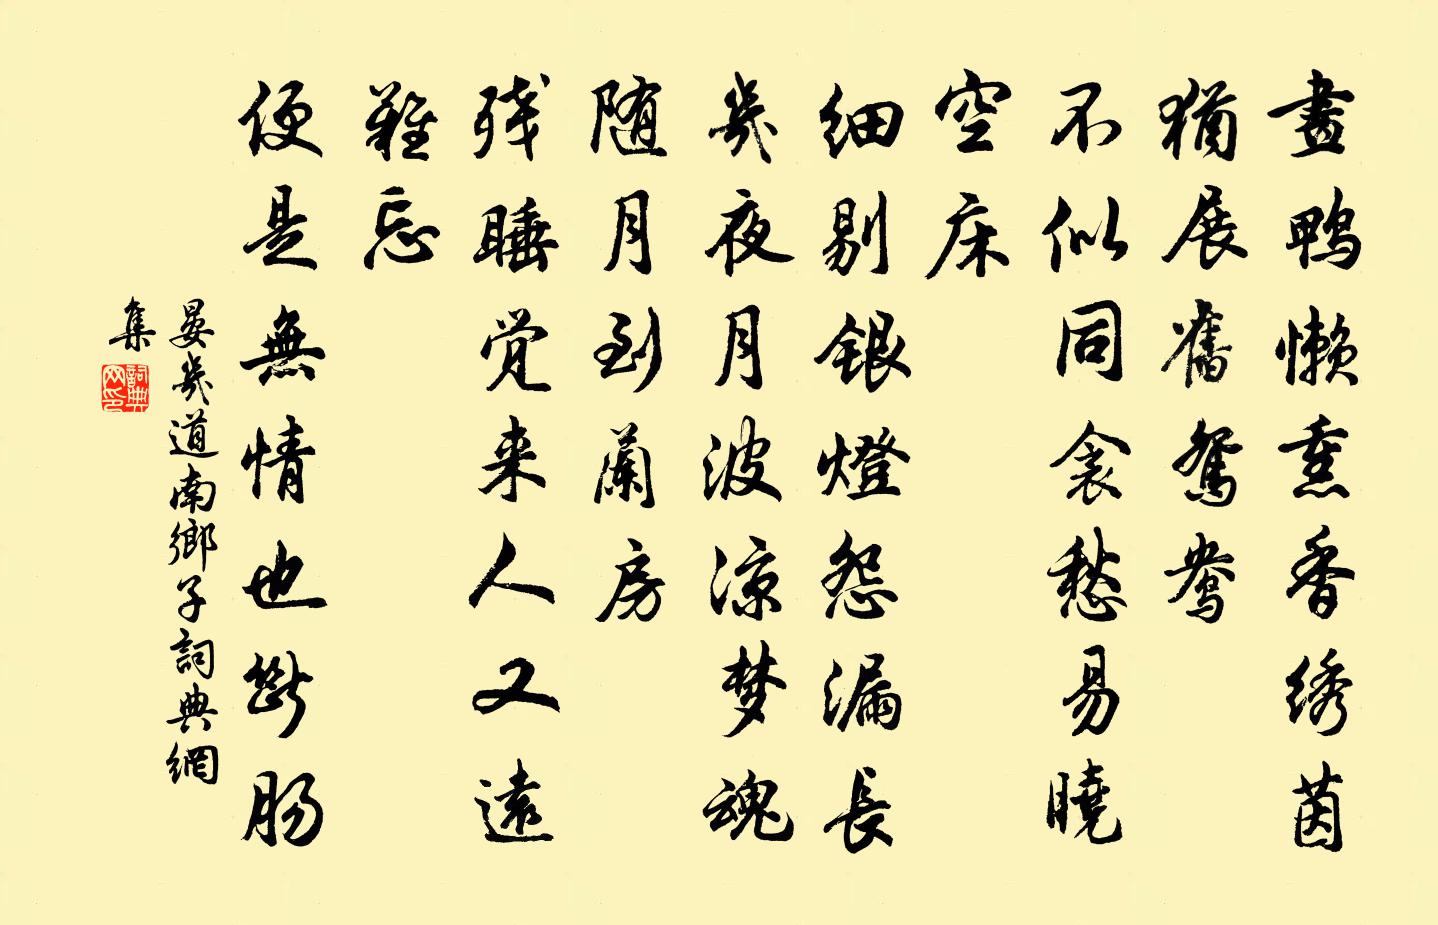 畫鴨懶熏香绣茵
猶展舊鴛鴦
不似同衾愁易曉
空床
细剔銀燈怨漏長
幾夜月波凉梦魂
随月到蘭房
残睡觉来人又遠
難忘
便是無情也斷肠
晏幾道南鄉子詞典網
集
詞典
网印